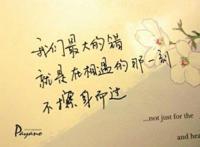 我们最大的错
就是在相遇的那一刻
不擦身而过
...not just for the
Payano
and hea